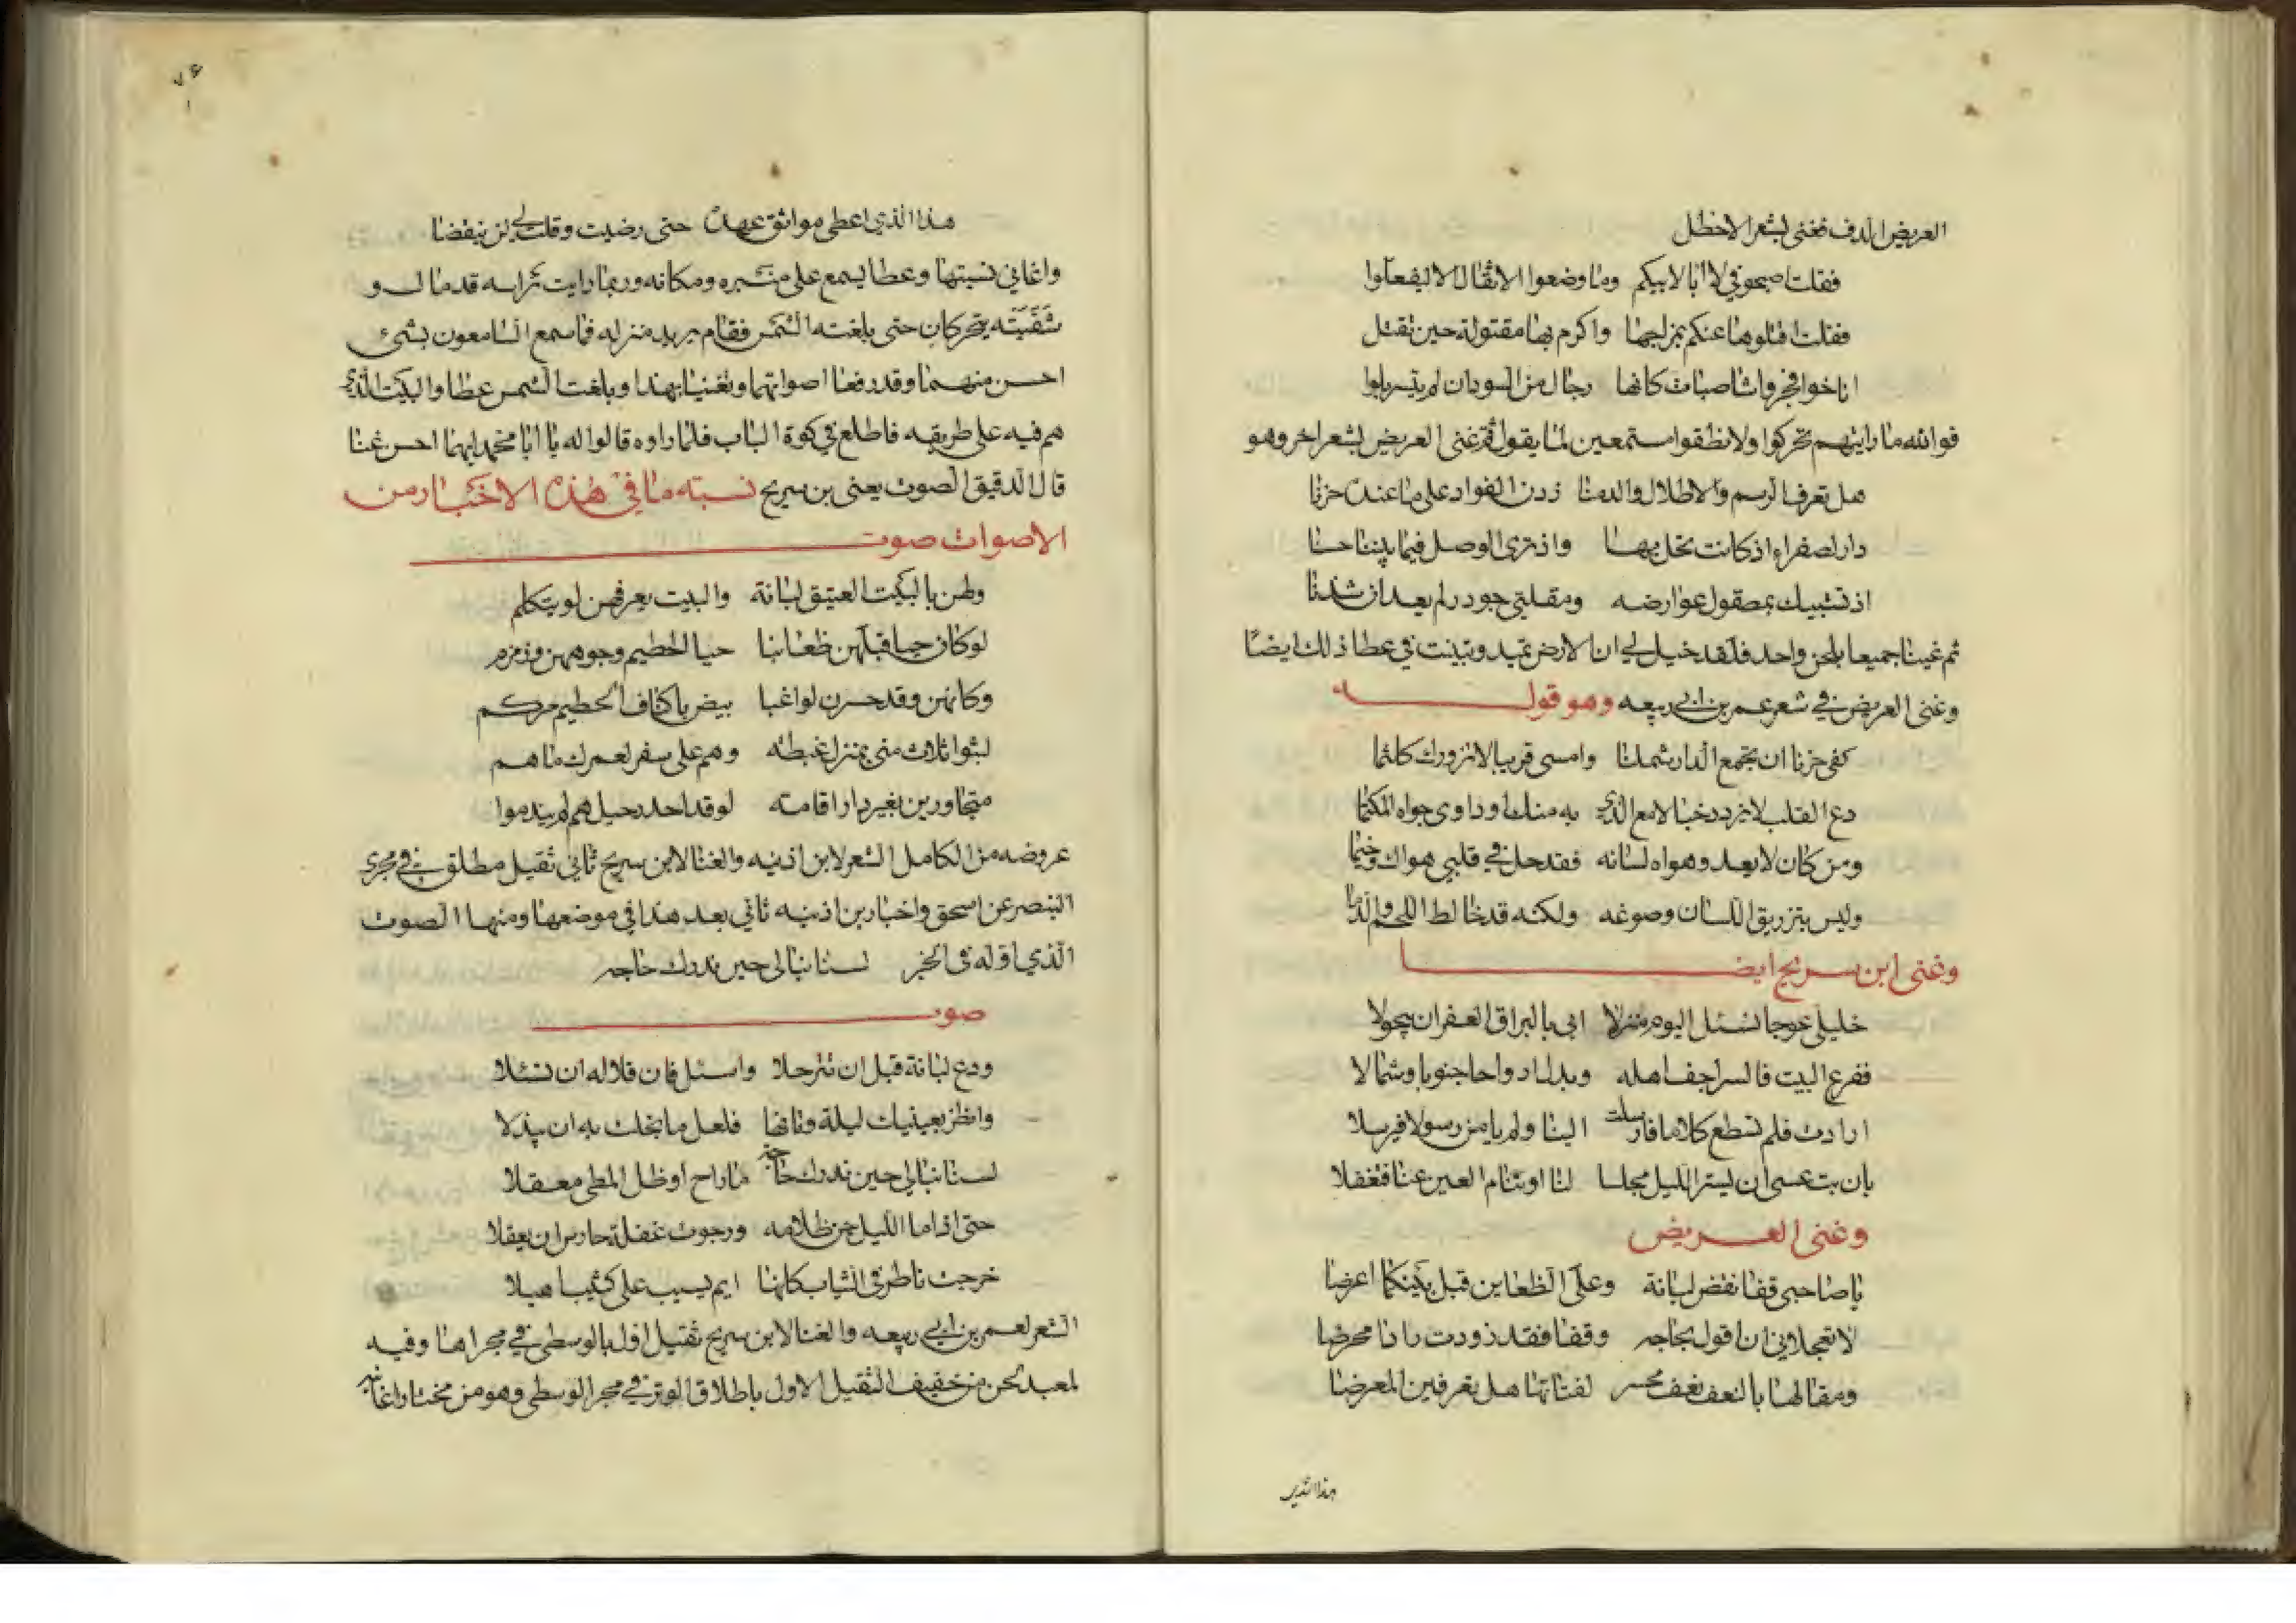 العريض الدف فغنى بشعر الاخطل
فقلت اصبحوني لا ابا لابيكم وما وضعوا الاثقال الا ليفعلوا
فقلت اقتلوها عنكم بمزاجها واكرم بها مقتولة حين تقتل
اناخوا فجروا شاصيات كانها رجال من السودان لم يتسربلوا
فوالله ما رايتهم تحركوا ولا نطقوا مستمعين لما يقول ثم غنى العريض بشعر اخر وهو
هل تعرف الرسم والاطلال والدمنا زدن الفواد على ما عنده حزنا
دار لصفراء اذ كانت تحل بها واذ ترى الوصل فيما بيننا حسنا
اذ تستبيك بمصقول عوارضه ومقلتي جودر لم يعد ان شدنا
ثم غنينا جميعا بلحن واحد فلقد خيل لي ان الارض تميد وتبينت في عطا ذلك ايضا
وغنى العريض في شعر عمر بن ابي ربيعه وهو قوله
كفى حزنا ان تجمع الدار شملنا وامسى قريبا لا تزورك كلثما
دع القلب لا يزدد خبالا مع الذي به منك او داوى جواه المكتما
ومن كان لا يعد وهواه لسانه فقد حل في قلبي هواك وخيما
وليس بتزريق اللسان وصوغه ولكنه قد خالط اللحم والدما
وغنى ابن سريج ايضا
خليلي عوجا نسئل اليوم منزلا ابى بالبراق العفران يتحولا
ففرع البيت فالسراجف اهله وبدل ارواحا جنوبا وشمالا
ارادت فلم تسطع كلاما فارسلت الينا ولم يامن رسولا فيرسلا
بان بت عسى ان يستر الليل مجلسا لنا او تنام العين عنا فتغفلا
وغنى العريض
يا صاحبي قفا نقض لبانة وعلى الظعاين قبل بينكما اعرضا
لا تعجلاني ان اقول بحاجه وقفا فقد زودت دادا محرضا
ومقالها بالنعف نعف محسر لفتاتها هل تعرفين المعرضا
هذا الذي
هذا الذي اعطى مواثق عهده حتى رضيت وقلت لي لن ينقضا
واغاني نسيتها وعطا يسمع على منبره ومكانه وربما رايت راسه قد مال و
شفتيه يتحركان حتى بلغته الشمس فقام يريد منزله فما سمع السامعون بشئ
احسن منهما وقد رفعا اصواتهما وتغنيا بهذا وبلغت الشمس عطا والبيت الذي
هم فيه على طريقه فاطلع في كوة الباب فلما راوه قالوا له يا ابا محمد ايهما احسن غنا
قال الدقيق الصوت يعنى بن سريج نسبته ما في هذه الاخبار من
الاصوات صوت
وطن بالبيت العتيق لبانة والبيت يعرفهن لو يتكلم
لو كان حيا قبلهن ظعاينا حيا الحطيم وجوههن وزمزم
وكانهن وقد حسرن لواغبا بيض باكناف الحطيم مركم
لبثوا ثلاث منى بمنزل غبطه وهم على سفر لعمرك ما هم
متجاورين بغير دار اقامته لو قد اجد رحيلهم لم يندموا
عروضه من الكامل الشعر لابن اذينه والغنا لابن سريج ثاني ثقيل مطلق في مجرى
البنصر عن اسحق واخبار بن اذينه تاتي بعد هذا في موضعها ومنها الصوت
الذي اوله في الخبر لسنا نبالى حين ندرك حاجه
صوت
ودع لبانة قبل ان تترحلا واسئل فان قلاله ان تسئلا
وانظر بعينيك ليلة وتانها فلعل ما بخلت به ان يبذلا
لسنا نبالي حين ندرك حاجة ما راح او ظل المطي معقلا
حتى اذا ما الليل جن ظلامه ورجوت غفلة حارس ان يعقلا
خرجت تاطر في الثياب كانها ايم يسيب على كثيب اهيلا
الشعر لعمر بن ابي ربيعه والغنا لابن سريج ثقيل اول بالوسطى في مجراها وفيه
لمعبد لحن من خفيف الثقيل الاول باطلاق الوتر في مجرا الوسطى وهو من مختار اغانيه